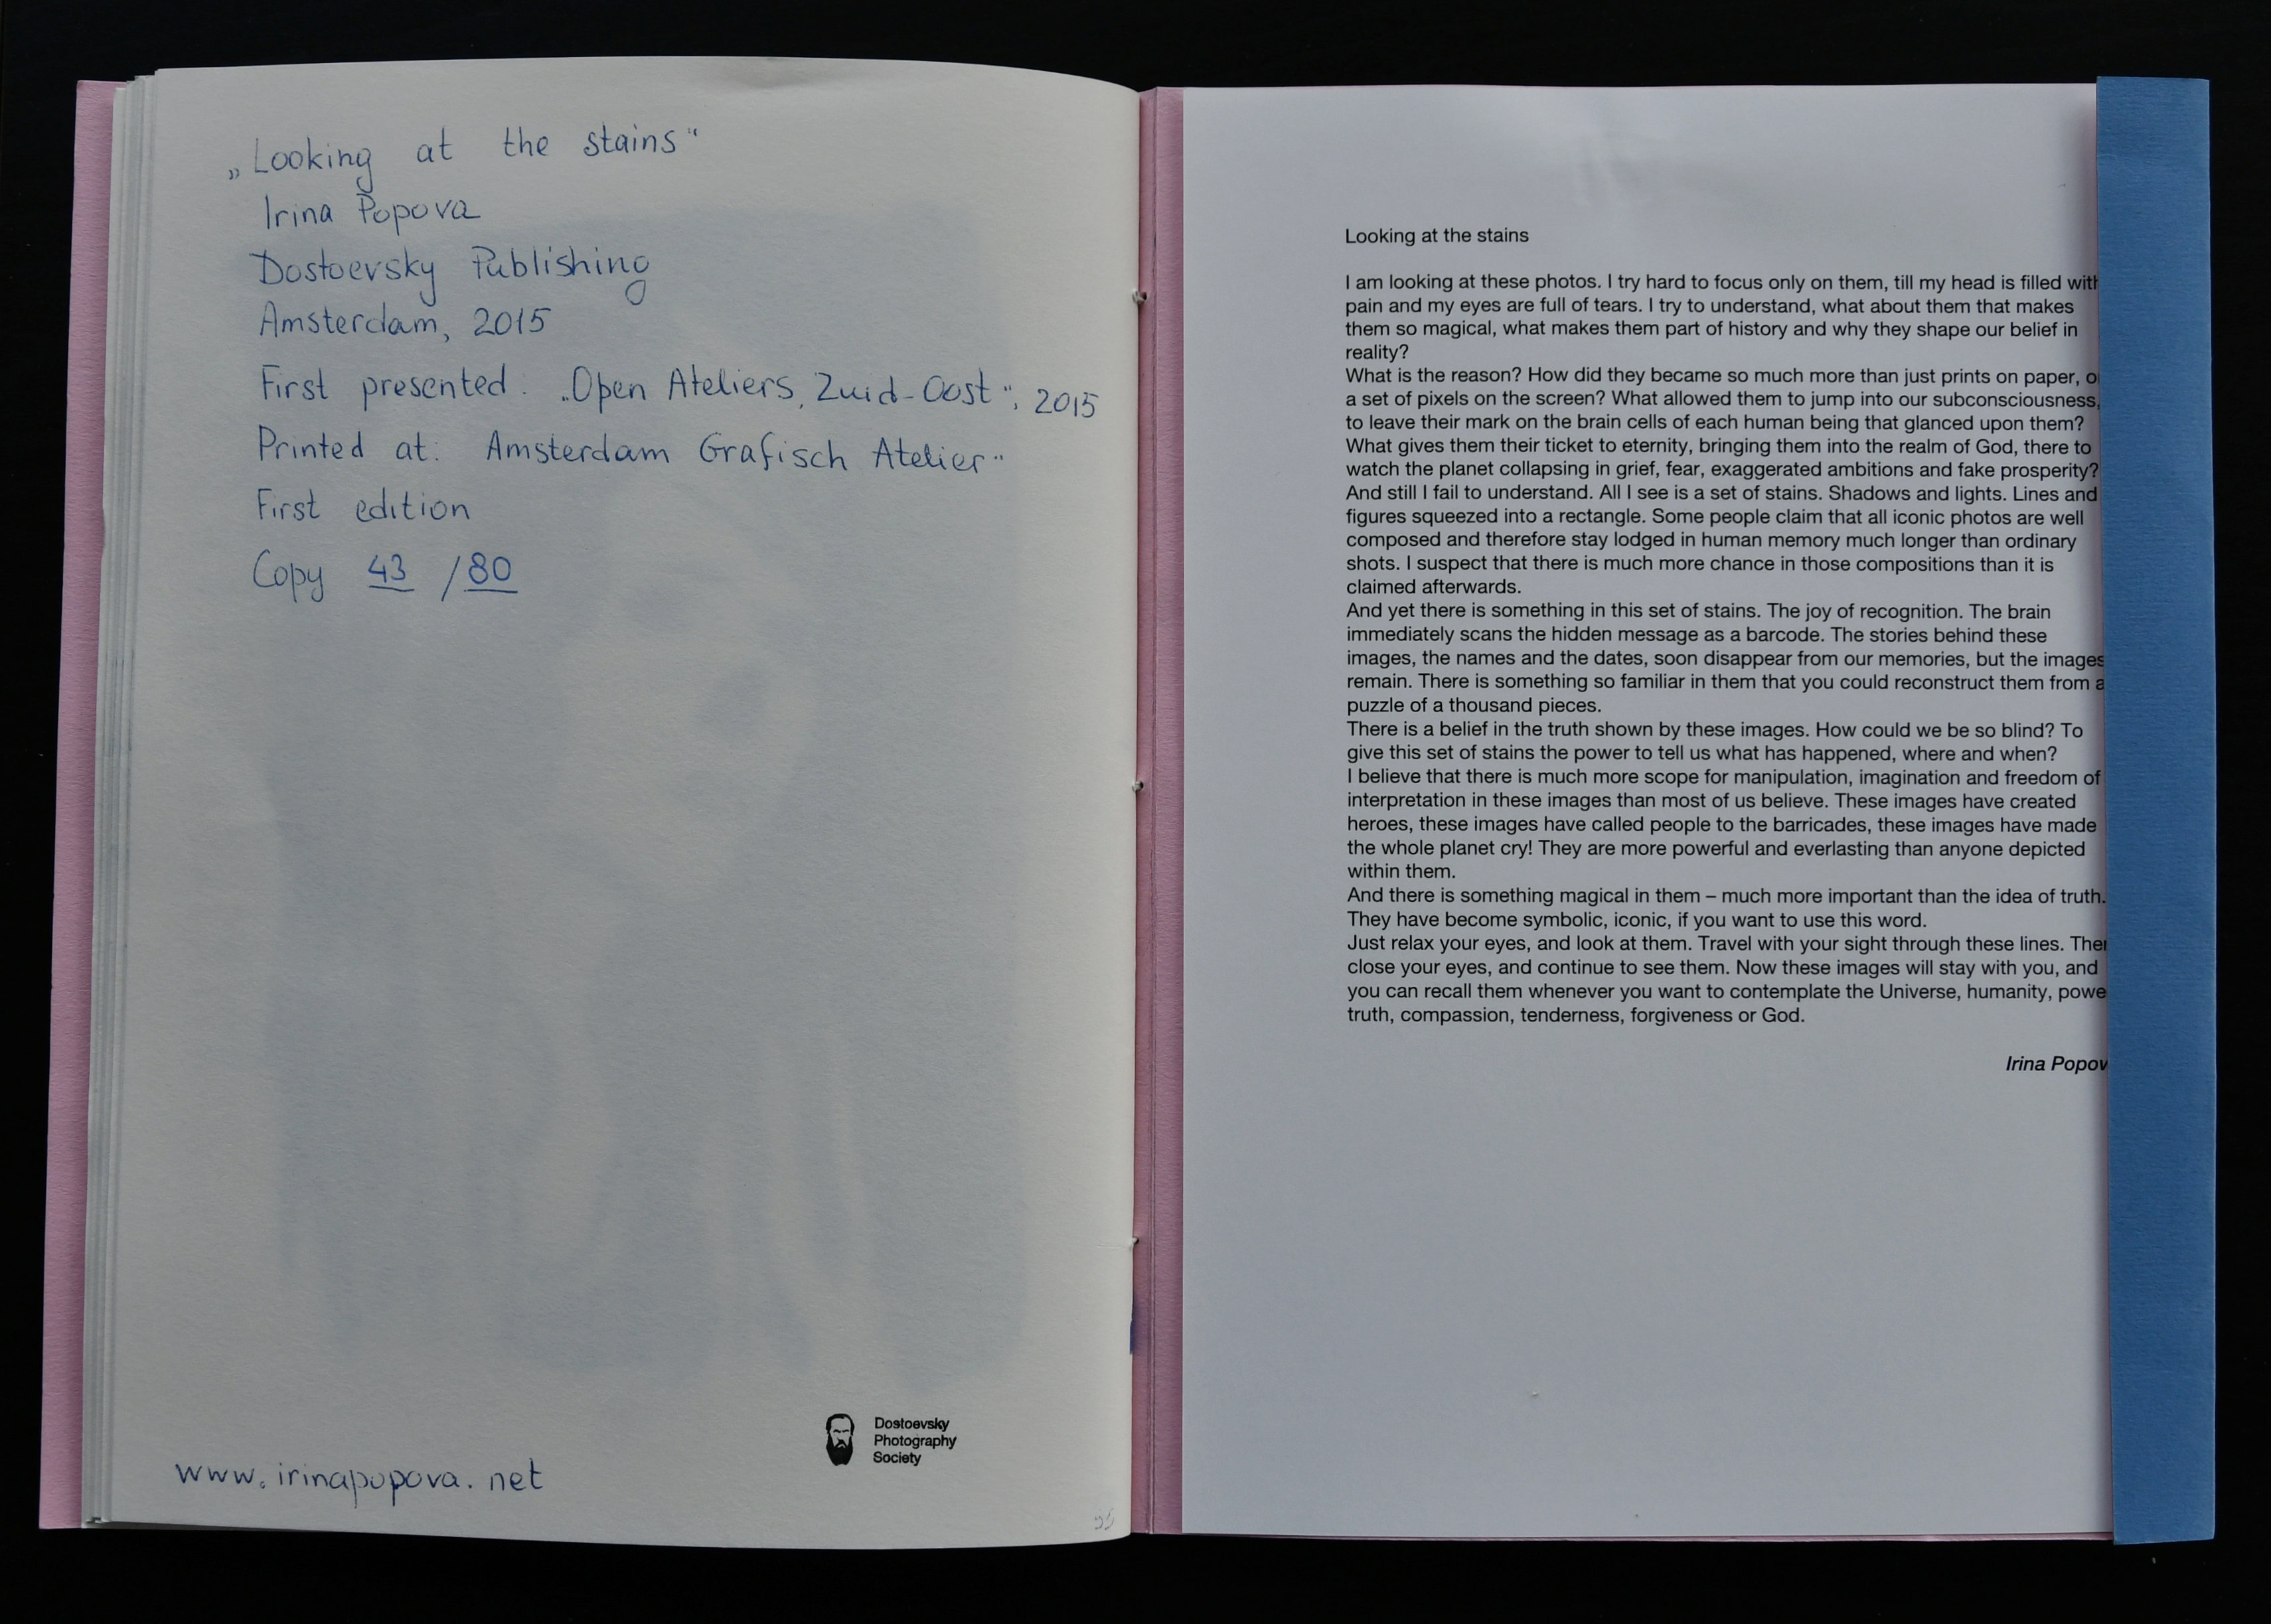 „Looking at the stains“
Irina Popova
Dostoevsky Publishing
Amsterdam, 2015
First presented: „Open Ateliers, Zuid-Oost“, 2015
Printed at: Amsterdam Grafisch Atelier“
First edition
Copy 43 / 80
www.irinapopova.net
Dostoevsky
Photography
Society
Looking at the stains
I am looking at these photos. I try hard to focus only on them, till my head is filled with
pain and my eyes are full of tears. I try to understand, what about them that makes
them so magical, what makes them part of history and why they shape our belief in
reality?
What is the reason? How did they became so much more than just prints on paper, o
a set of pixels on the screen? What allowed them to jump into our subconsciousness,
to leave their mark on the brain cells of each human being that glanced upon them?
What gives them their ticket to eternity, bringing them into the realm of God, there to
watch the planet collapsing in grief, fear, exaggerated ambitions and fake prosperity?
And still I fail to understand. All I see is a set of stains. Shadows and lights. Lines and
figures squeezed into a rectangle. Some people claim that all iconic photos are well
composed and therefore stay lodged in human memory much longer than ordinary
shots. I suspect that there is much more chance in those compositions than it is
claimed afterwards.
And yet there is something in this set of stains. The joy of recognition. The brain
immediately scans the hidden message as a barcode. The stories behind these
images, the names and the dates, soon disappear from our memories, but the images
remain. There is something so familiar in them that you could reconstruct them from a
puzzle of a thousand pieces.
There is a belief in the truth shown by these images. How could we be so blind? To
give this set of stains the power to tell us what has happened, where and when?
I believe that there is much more scope for manipulation, imagination and freedom of
interpretation in these images than most of us believe. These images have created
heroes, these images have called people to the barricades, these images have made
the whole planet cry! They are more powerful and everlasting than anyone depicted
within them.
And there is something magical in them – much more important than the idea of truth.
They have become symbolic, iconic, if you want to use this word.
Just relax your eyes, and look at them. Travel with your sight through these lines. Then
close your eyes, and continue to see them. Now these images will stay with you, and
you can recall them whenever you want to contemplate the Universe, humanity, powe
truth, compassion, tenderness, forgiveness or God.
Irina Popov